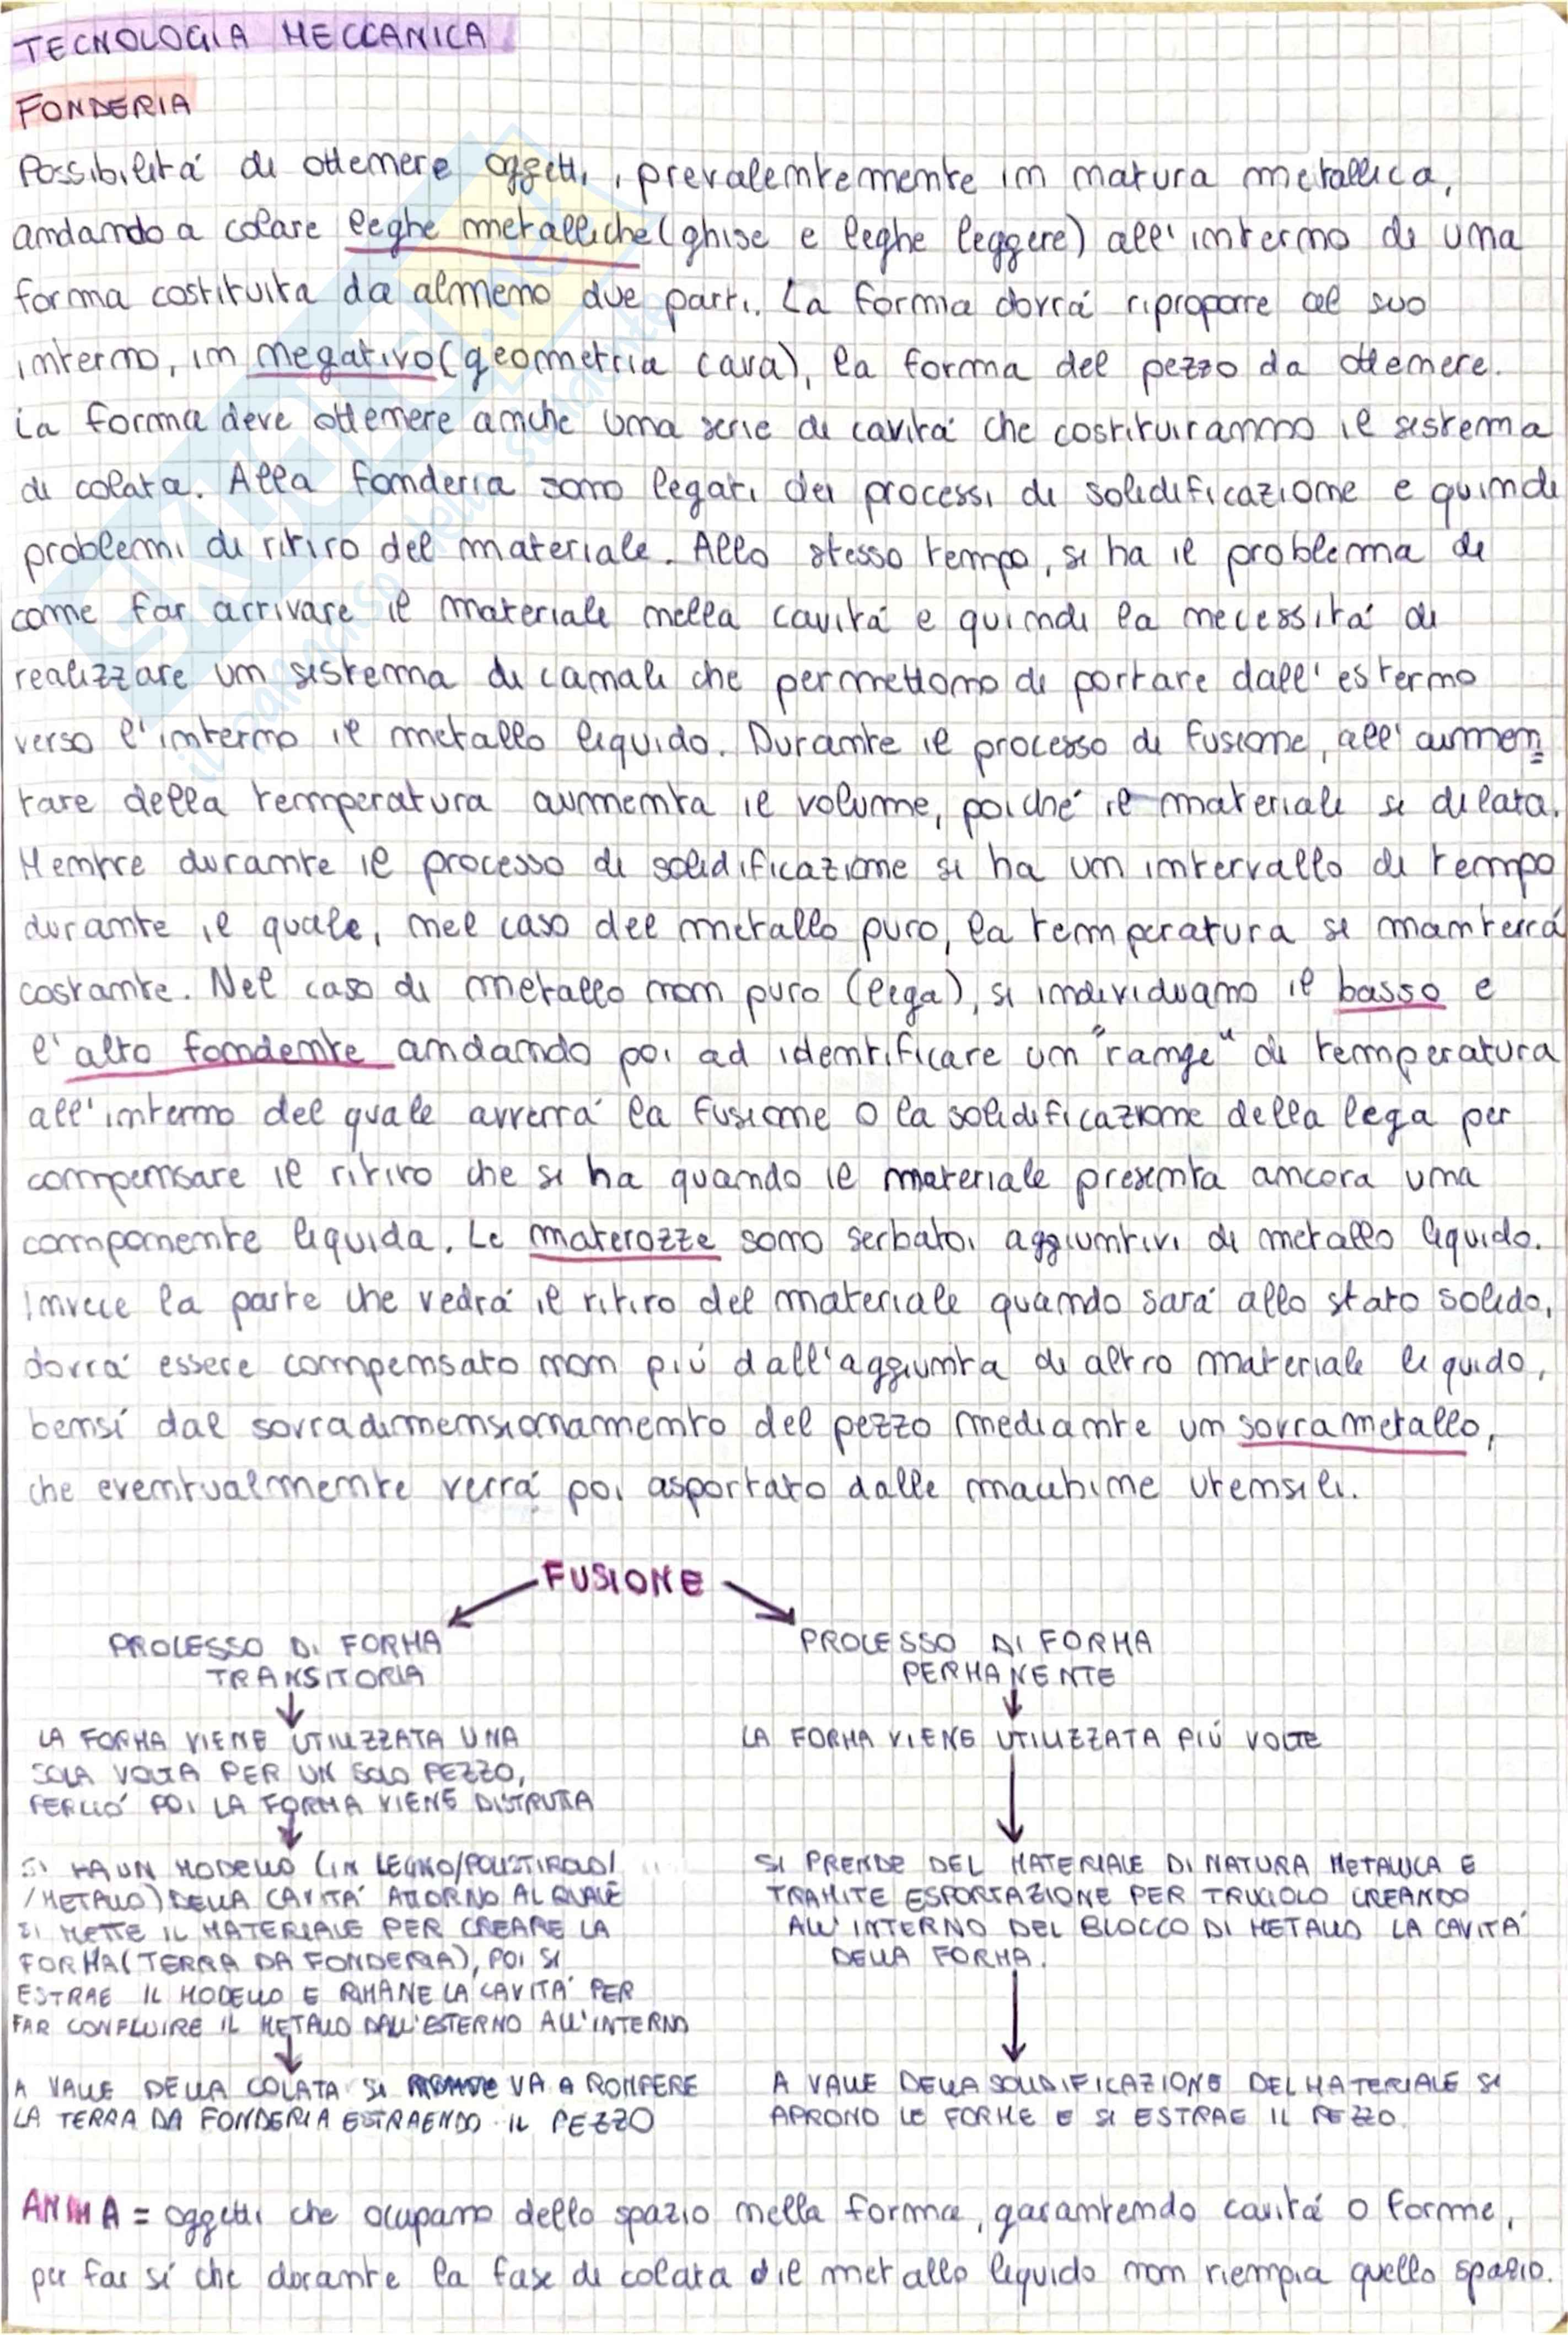 TECNOLOGIA MECCANICA
FONDERIA
Possibilitá di ottenere oggetti, prevalentemente in natura metallica,
andando a colare leghe metalliche (ghise e leghe leggere) all'interno di una
forma costituita da almeno due parti. La forma dovrá riproporre al suo
interno, in negativo (geometria cava), la forma del pezzo da ottenere.
La forma deve ottenere anche una serie di cavitá che costituiranno il sistema
di colata. Alla fonderia sono legati dei processi di solidificazione e quindi
problemi di ritiro del materiale. Allo stesso tempo, si ha il problema di
come far arrivare il materiale nella cavitá e quindi la necessitá di
realizzare un sistema di canali che permettono di portare dall'esterno
verso l'interno il metallo liquido. Durante il processo di fusione, all'aumen
tare della temperatura aumenta il volume, poiché il materiale si dilata.
Mentre durante il processo di solidificazione si ha un intervallo di tempo
durante il quale, nel caso del metallo puro, la temperatura si manterrá
costante. Nel caso di metallo non puro (lega), si individuano il basso e
l'alto fondente andando poi ad identificare un "range" di temperatura
all'interno del quale avverrá la fusione o la solidificazione della lega per
compensare il ritiro che si ha quando il materiale presenta ancora una
componente liquida. Le materozze sono serbatoi aggiuntivi di metallo liquido.
Invece la parte che vedrá il ritiro del materiale quando sará allo stato solido,
dovrá essere compensato non piú dall'aggiunta di altro materiale liquido,
bensí dal sovradimensionamento del pezzo mediante un sovrametallo,
che eventualmente verrá poi asportato dalle macchine utensili.
FUSIONE
PROCESSO DI FORMA
TRANSITORIA
LA FORMA VIENE UTILIZZATA UNA
SOLA VOLTA PER UN SOLO PEZZO,
PERCIÓ POI LA FORMA VIENE DISTRUTTA
SI HA UN MODELLO (IN LEGNO/POLISTIROLO/
/METALLO) DELLA CAVITÁ ATTORNO AL QUALE
SI METTE IL MATERIALE PER CREARE LA
FORMA (TERRA DA FONDERIA), POI SI
ESTRAE IL MODELLO E RIMANE LA CAVITÁ PER
FAR CONFLUIRE IL METALLO DALL'ESTERNO ALL'INTERNO
A VALLE DELLA COLATA SI VA A ROMPERE
LA TERRA DA FONDERIA ESTRAENDO IL PEZZO
PROCESSO DI FORMA
PERMANENTE
LA FORMA VIENE UTILIZZATA PIÚ VOLTE
SI PRENDE DEL MATERIALE DI NATURA METALLICA E
TRAMITE ESPORTAZIONE PER TRUCIOLO CREANDO
ALL'INTERNO DEL BLOCCO DI METALLO LA CAVITÁ
DELLA FORMA.
A VALLE DELLA SOLIDIFICAZIONE DEL MATERIALE SI
APRONO LE FORME E SI ESTRAE IL PEZZO.
ANIMA = oggetti che occupano dello spazio nella forma, garantendo cavitá o forme,
per far sí che durante la fase di colata il metallo liquido non riempia quello spazio.